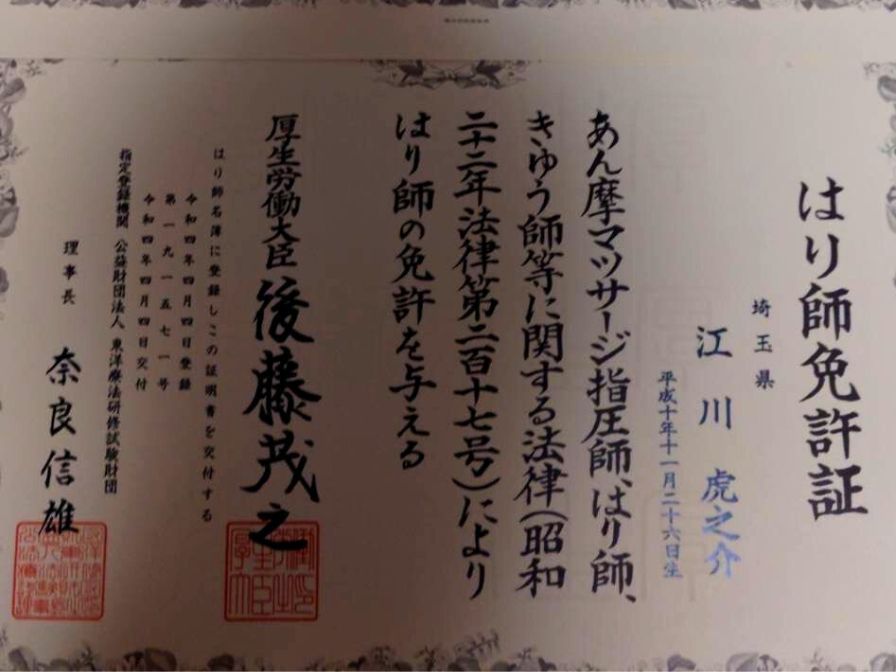 はり師免許証
埼玉県
江川 虎之介
平成十年十一月二十六日生
あん摩マツサージ指圧師、はり師、
きゆう師等に関する法律(昭和
二十二年法律第二百十七号)により
はり師の免許を与える
厚生労働大臣 後藤茂之
はり師名簿に登録しこの証明書を交付する
令和四年四月四日登録
第一九一五七一号
令和四年四月四日交付
指定登録機関 公益財団法人 東洋療法研修試験財団
理事長 奈良信雄